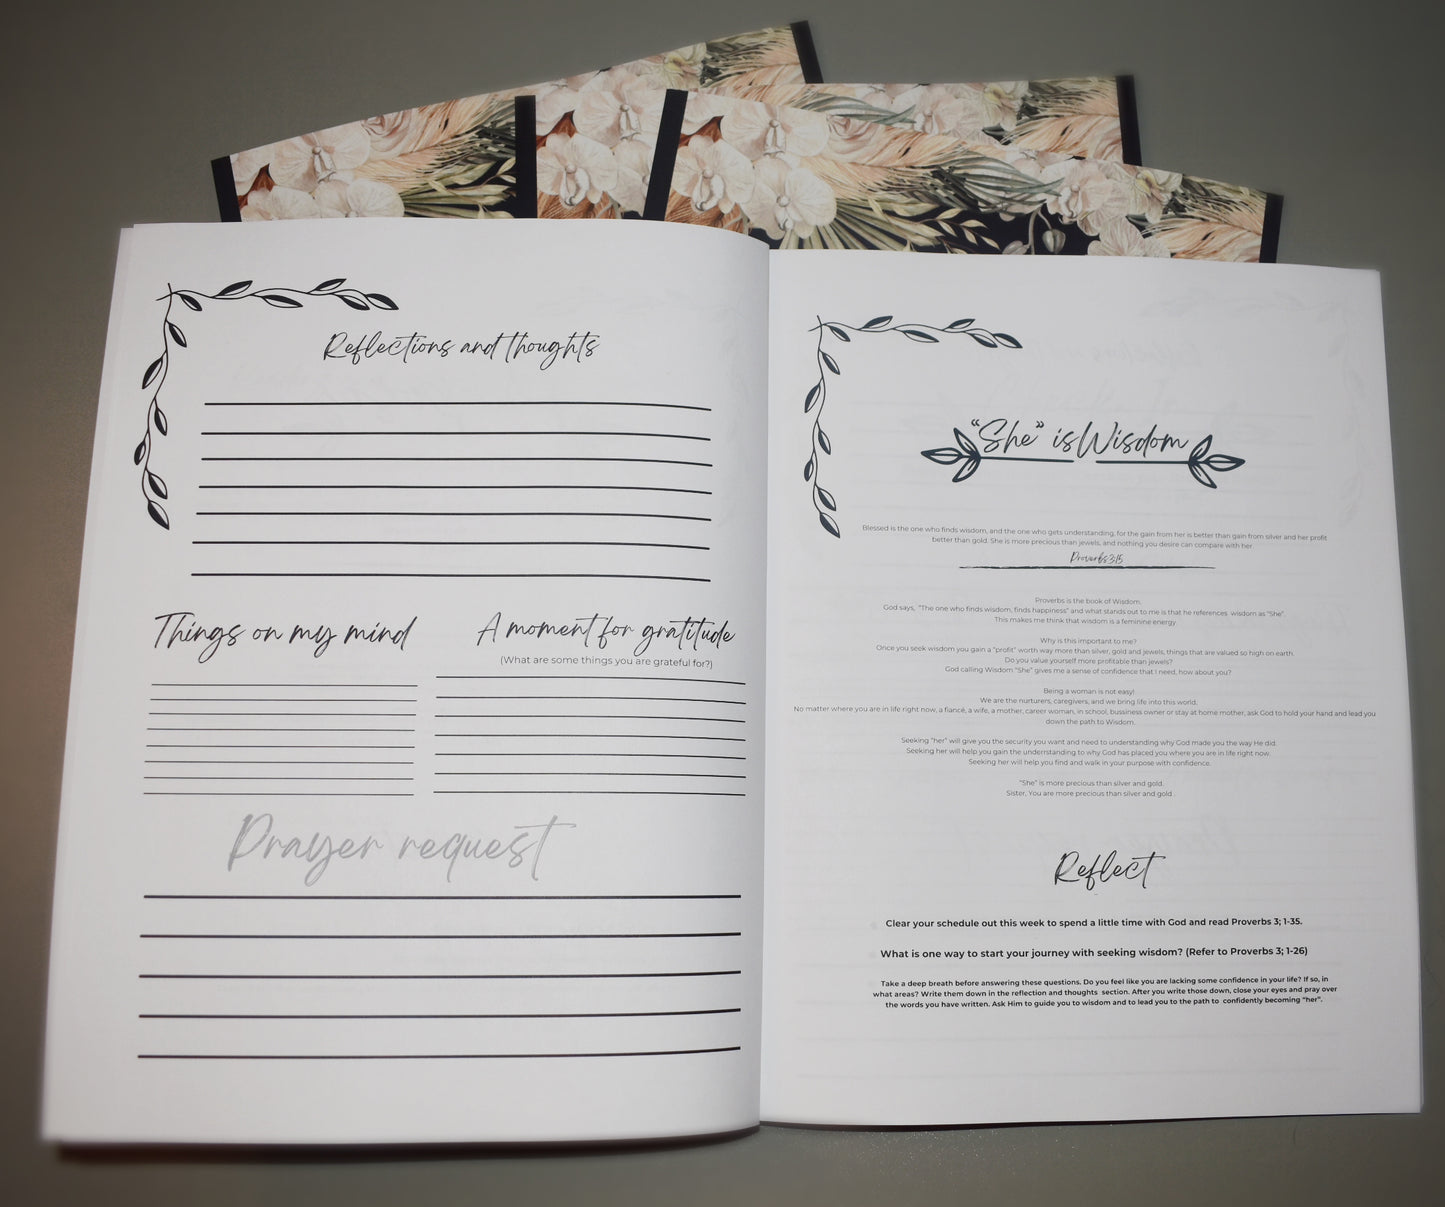 Reflections and thoughts
Things on my mind
A moment for gratitude
(What are some things you are grateful for?)
Prayer request
"She" is Wisdom
Blessed is the one who finds wisdom, and the one who gets understanding, for the gain from her is better than gain from silver and her profit
better than gold. She is more precious than jewels, and nothing you desire can compare with her.
Proverbs 3:15
Proverbs is the book of Wisdom.
God says, "The one who finds wisdom, finds happiness" and what stands out to me is that he references wisdom as "She".
This makes me think that wisdom is a feminine energy.
Why is this important to me?
Once you seek wisdom you gain a "profit" worth way more than silver, gold and jewels, things that are valued so high on earth.
Do you value yourself more profitable than jewels?
God calling Wisdom "She" gives me a sense of confidence that I need, how about you?
Being a woman is not easy!
We are the nurturers, caregivers, and we bring life into this world.
No matter where you are in life right now, a fiancé, a wife, a mother, career woman, in school, bussiness owner or stay at home mother, ask God to hold your hand and lead you
down the path to Wisdom.
Seeking "her" will give you the security you want and need to understanding why God made you the way He did.
Seeking her will help you gain the underrstanding to why God has placed you where you are in life right now.
Seeking her will help you find and walk in your purpose with confidence.
"She" is more precious than silver and gold.
Sister, You are more precious than silver and gold .
Reflect
Clear your schedule out this week to spend a little time with God and read Proverbs 3; 1-35.
What is one way to start your journey with seeking wisdom? (Refer to Proverbs 3; 1-26)
Take a deep breath before answering these questions. Do you feel like you are lacking some confidence in your life? If so, in
what areas? Write them down in the reflection and thoughts section. After you write those down, close your eyes and pray over
the words you have written. Ask Him to guide you to wisdom and to lead you to the path to confidently becoming "her".